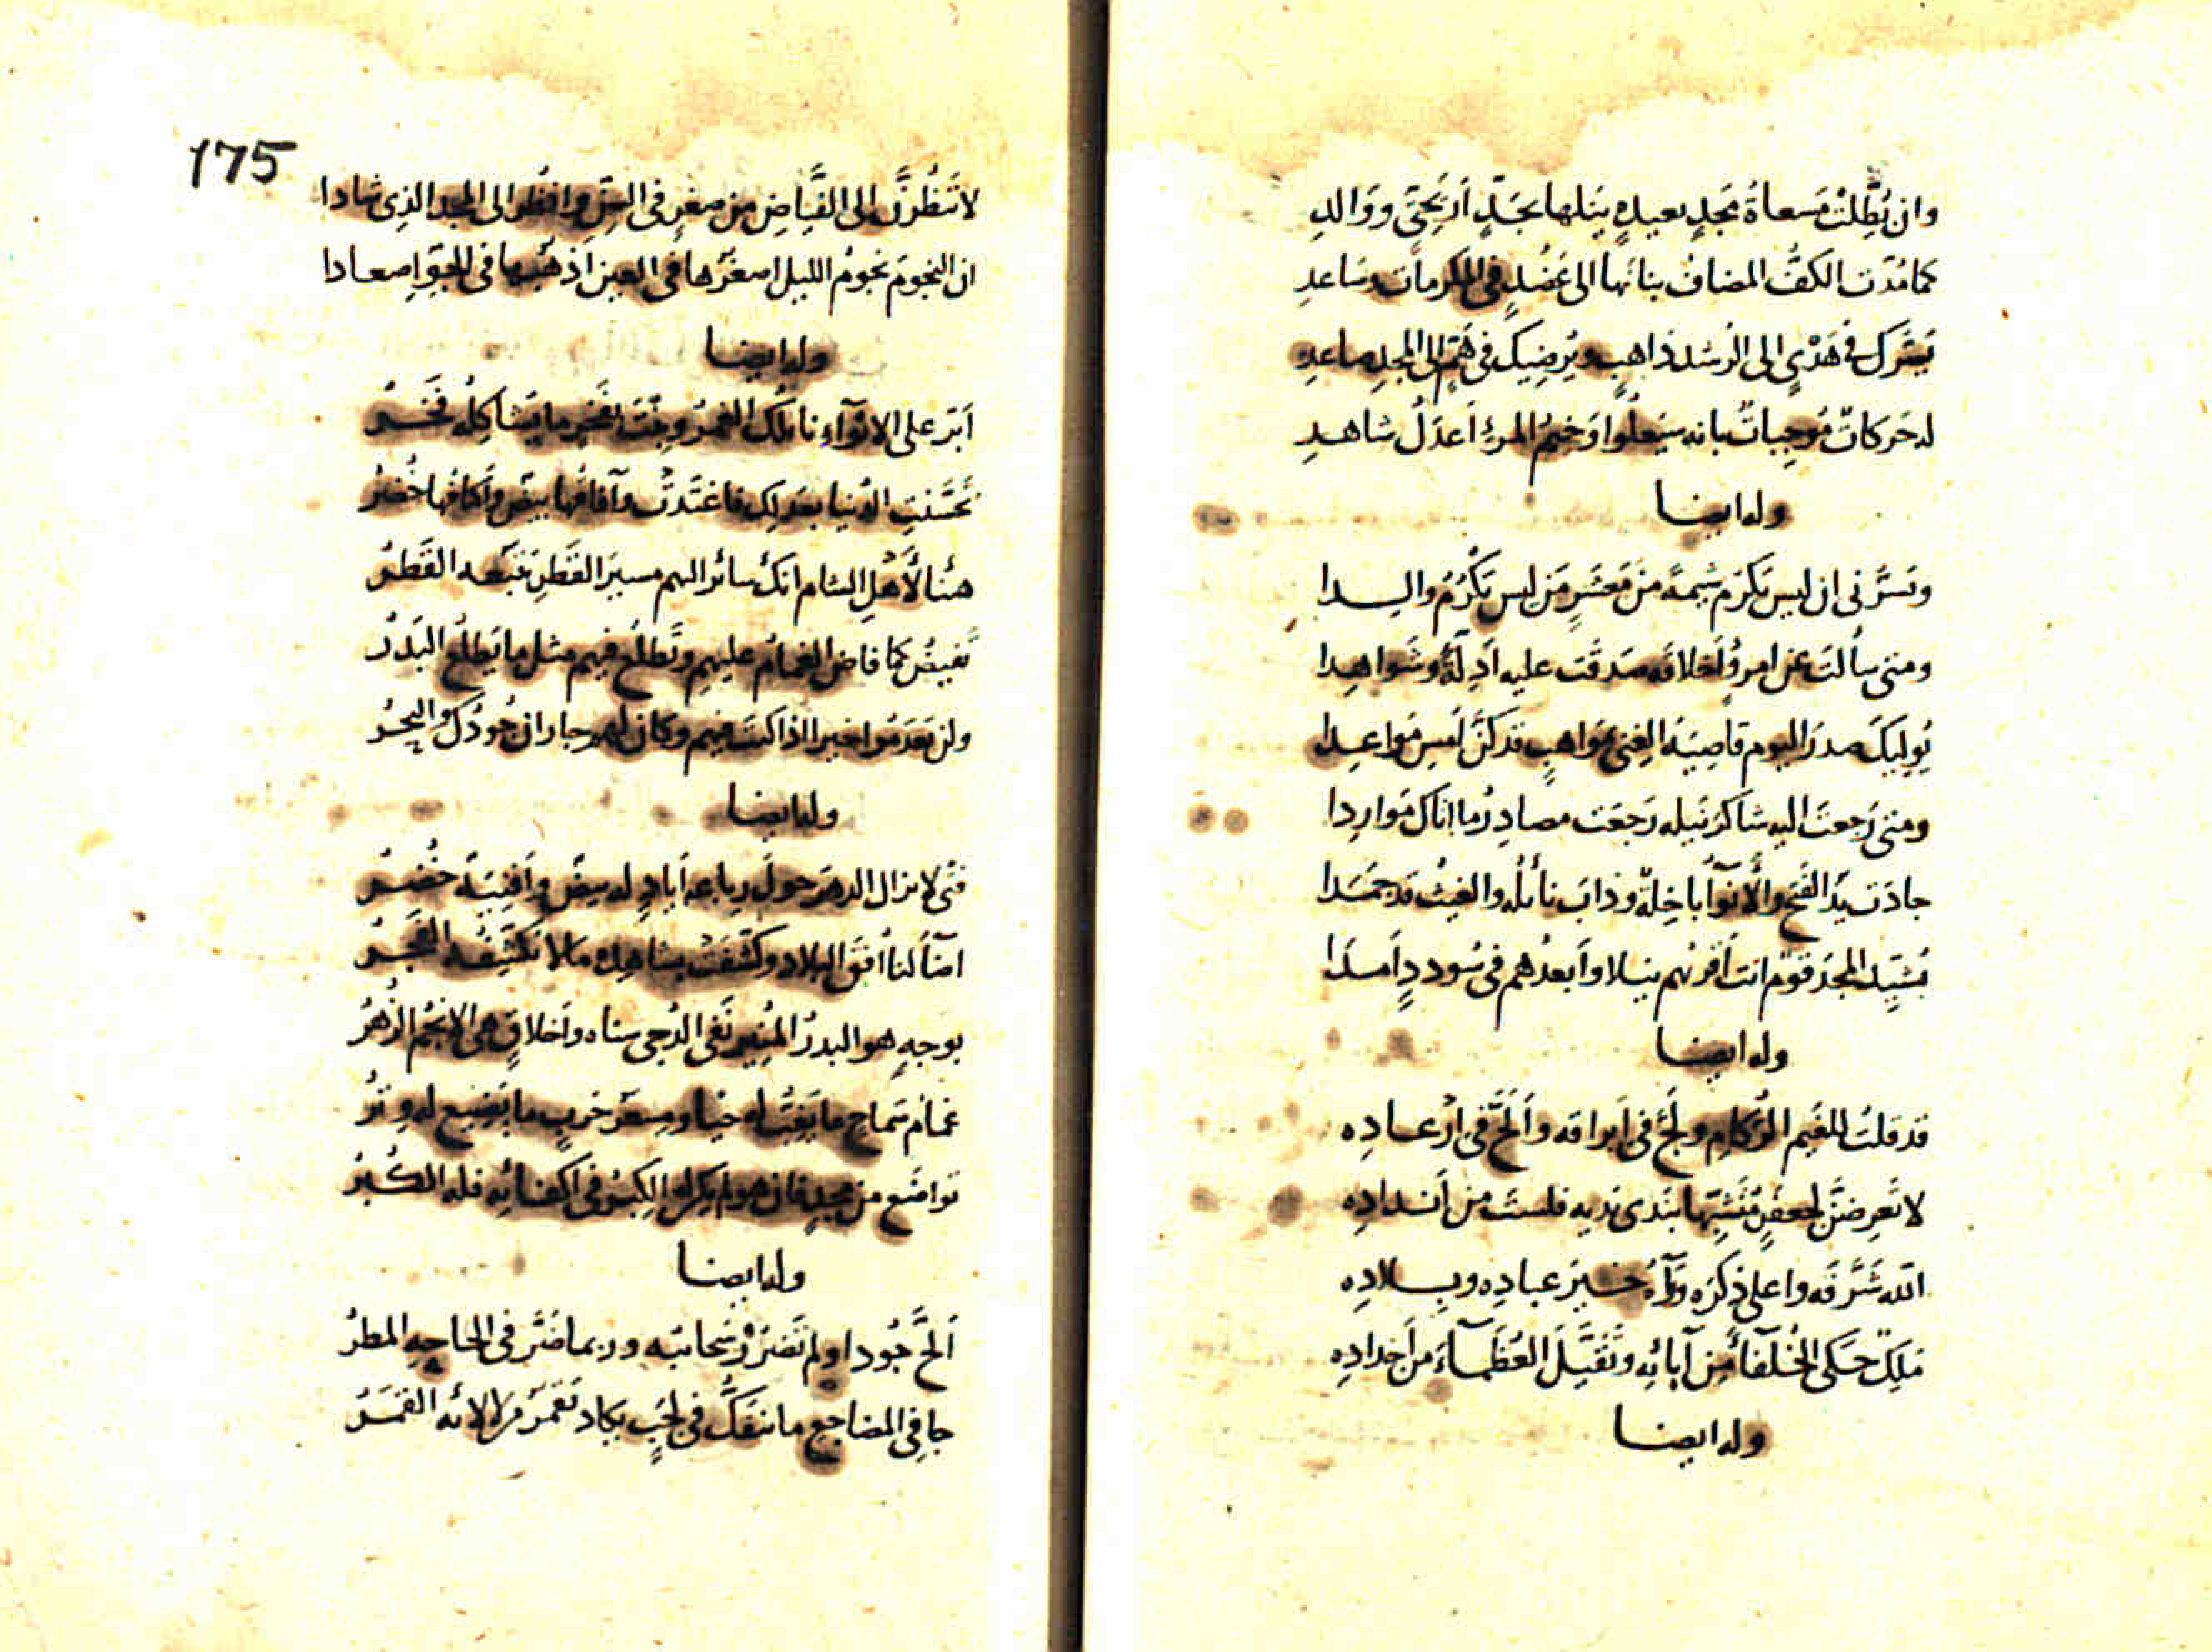 وان يُطْلَبْ مَسعاةُ مَجدٍ بعيدةٍ ينلها بجَدٍّ أريحيّ ووالدِ
كما مُدّت الكفُّ المضاف بنانُها الى عَضُدٍ فى المكرمات وساعدِ
يَسُرّك فى هَدْىٍ الى الرشد ذاهبٍ ويُرضيك فى همٍّ الى المجدِ صاعدِ
له حَركاتٌ مُوجِباتٌ بانه سَيَعلُوا وخِيمُ المرءِ اعدَلُ شاهدِ
وله ايضا
وتسرّنى ان ليس يَكرُم شيمةً من مَعشَرٍ مَن ليس يَكْرُمُ والدا
ومتى سألتَ عن امرؤ أخلاقَه صدقَت عليه ادِلّةً وشواهدا
يُوليكَ صدرَ اليوم قاصيةَ الغِنى بمواهبٍ قد كنّ أمس مَواعِدا
ومتى رَجعتَ اليه شاكرَ نَيله رَجَعَت مصادِرُ ما اتاك مَوارِدا
جادَت يدَا الفتح والأنوآ باخِلةٌ وذابَ نائلُه والغيثُ قد جَمَدا
يُشيّد المجدَ قومٌ انت أقربُهم نيلا وأبعدُهم فى سُوددٍ أمدَا
وله ايضا
قد قلتُ للغيم الرُّكامِ ولجَّ فى ابراقه وألَحَّ فى ارْعادِه
لا تَعرِضنَّ لجعفرٍ مُتَشَبّها بنَدى يديه فلستَ من أندادِه
الله شَرَّفَه واعلى ذكرَه ورآهُ خيرَ عبادِه وبلادِه
مَلِكٌ حَكى الخُلَفاءَ من آبائِه وتَقَيَّلَ العُظَماءَ من أجدادِه
وله ايضا
175
لا تَنظُرَنَّ الى الفَيّاضِ من صِغَرٍ فى السِنّ وانظُر الى المجد الذى شادا
ان النجومَ نجومُ الليل اصغَرُها فى العين اذهَبُها فى الجوّ اِصعادا
وله ايضا
اَبَرّ على الانوآءِ نائلُك الغمرُ وبِنْتَ بفَخرٍ ما يُشاكِلُه فَخرُ
تَحسّنتِ الدُنيا بعَدلِك فاغتَدَتْ وآفاقُها بيضٌ وأكنافُها خُضرُ
هنئا لأَهْلِ الشام انكَ سائر اليهم مسيرَ القَطرِ تَتبَعه القَطرُ
تَفيضُ كما فاض الغمامُ عليهِم وتَطلُعُ فيهم مثل ما يَطلُعُ البَدرُ
ولن يَعدَمُوا خيرا اذا كنتَ فيهم وكان لهم جاران جُودُك والبحرُ
وله ايضا
فتًى لا يزال الدهرَ حولَ رِباعه أيادٍ له بيضٌ وأفنيةٌ خُضرُ
اضآءَ لنا أفقَ البلاد وكشّفَتْ مشاهده ما لا تَكشّفه الفَجرُ
بوجهٍ هو البدرُ المُنير نَفى الدُجى سناه واخلاقٍ هى الانجُم الزُهرُ
غمامُ سَماحٍ ما يَغُبُّ له حَيا ومِسعرُ حَربٍ ما يَضيع له وِترُ
تواضَع من مجدٍ فان هو لم يكن له الكِبرُ فى اكفائِه فله الكُبرُ
وله ايضا
اَلَحَّ جُودا ولم تَضرُرْ سَحائبه وربما ضَرّ فى الحاجهِ المطرُ
جافى المضاجع ما ينفكُّ فى لجَبٍ يكاد تُقمَرُ من لالائه القمَرُ